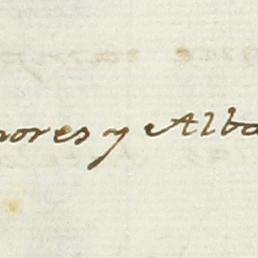 nores y Alba